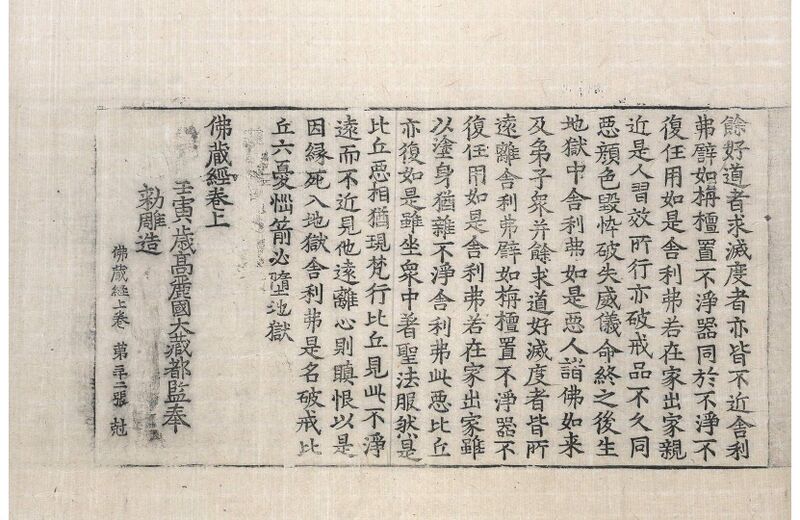 餘好道者求滅度者亦皆不近舍利
弗譬如栴檀置不淨器同於不淨不
復任用如是舍利弗若在家出家親
近是人習效所行亦破戒品不久同
惡顔色毀悴破失威儀命終之後生
地獄中舍利弗如是惡人諸佛如来
及弟子衆并餘求道好滅度者皆所
遠離舍利弗譬如栴檀置不淨器不
復任用如是舍利弗若在家出家雖
以塗身猶雜不淨舍利弗此惡比丘
亦復如是雖坐衆中著聖法服然是
比丘惡相猶現梵行比丘見此不淨
遠而不近見他遠離心則瞋恨以是
因縁死入地獄舍利弗是名破戒比
丘六憂惱箭必墮地獄
佛藏經卷上
壬寅歳高麗國大藏都監奉
勅雕造
佛藏經上卷 第三十二張 尅